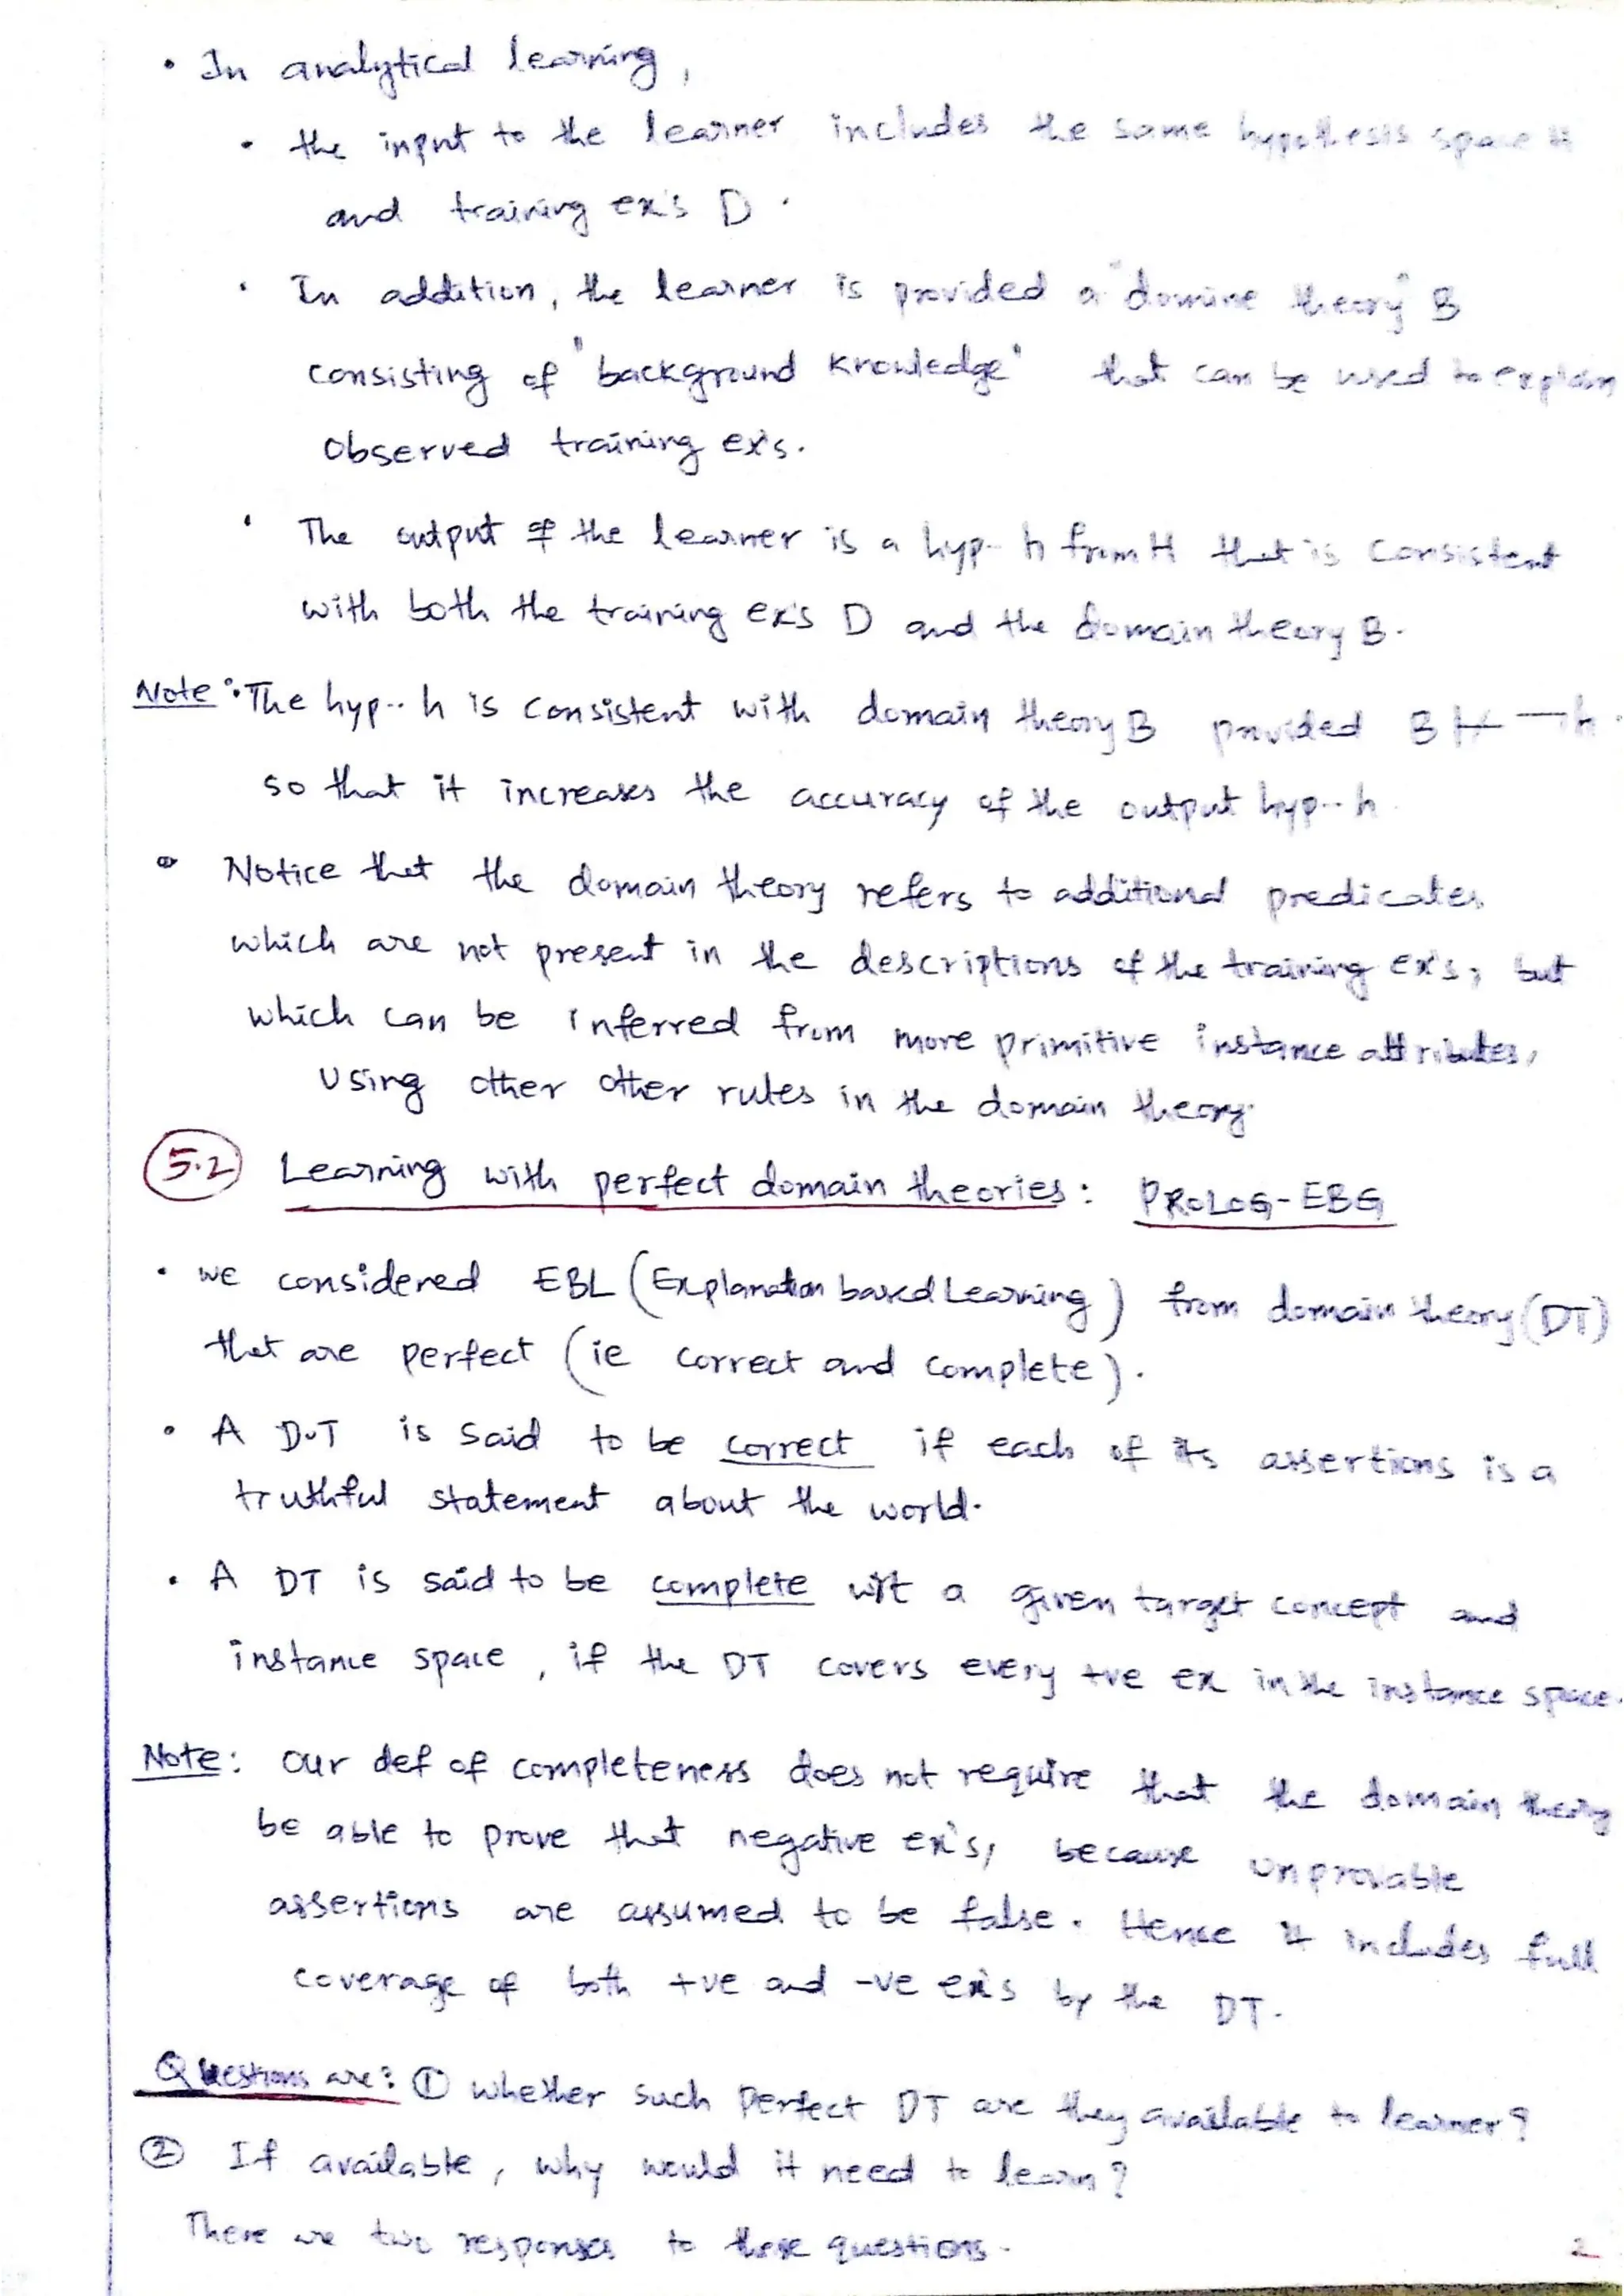 • In analytical learning,
• the input to the learner includes the same hypothesis space H
and training ex's D.
• In addition, the learner is provided a "domine theory" B
consisting of "background knowledge" that can be used to explain
observed training ex's.
• The output of the learner is a hyp.. h from H that is consistent
with both the training ex's D and the domain theory B.
Note:. The hyp.. h is consistent with domain theory B provided B ⊬ ¬h.
so that it increases the accuracy of the output hyp.. h.
• Notice that the domain theory refers to additional predicates
which are not present in the descriptions of the training ex's, but
which can be inferred from more primitive instance attributes,
using other other rules in the domain theory.
5.2 Learning with perfect domain theories: PROLOG-EBG
• we considered EBL (Explanation based Learning) from domain theory (DT)
that are perfect (ie correct and complete).
• A D.T is said to be correct if each of its assertions is a
truthful statement about the world.
• A DT is said to be complete wrt a given target concept and
instance space, if the DT covers every +ve ex in the instance space.
Note: our def of completeness does not require that the domain theory
be able to prove that negative ex's, because unprovable
assertions are assumed to be false. Hence it includes full
coverage of both +ve and -ve ex's by the DT.
Questions are: ① whether such perfect DT are they available to learner?
② If available, why would it need to learn?
There are two responses to these questions.
2